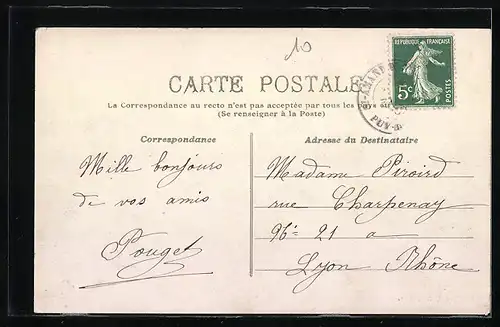 10
CARTE POSTALE
La Correspondance au recto n'est pas acceptée par tous les
(Se renseigner à la Poste)
RÉPUBLIQUE FRANÇAISE
5c
POSTES
PUY-D
Correspondance
Mille bonjours
de vos amis
Pouget
Adresse du Destinataire
Madame Piroird
rue Charpenay
21
Lyon Rhône